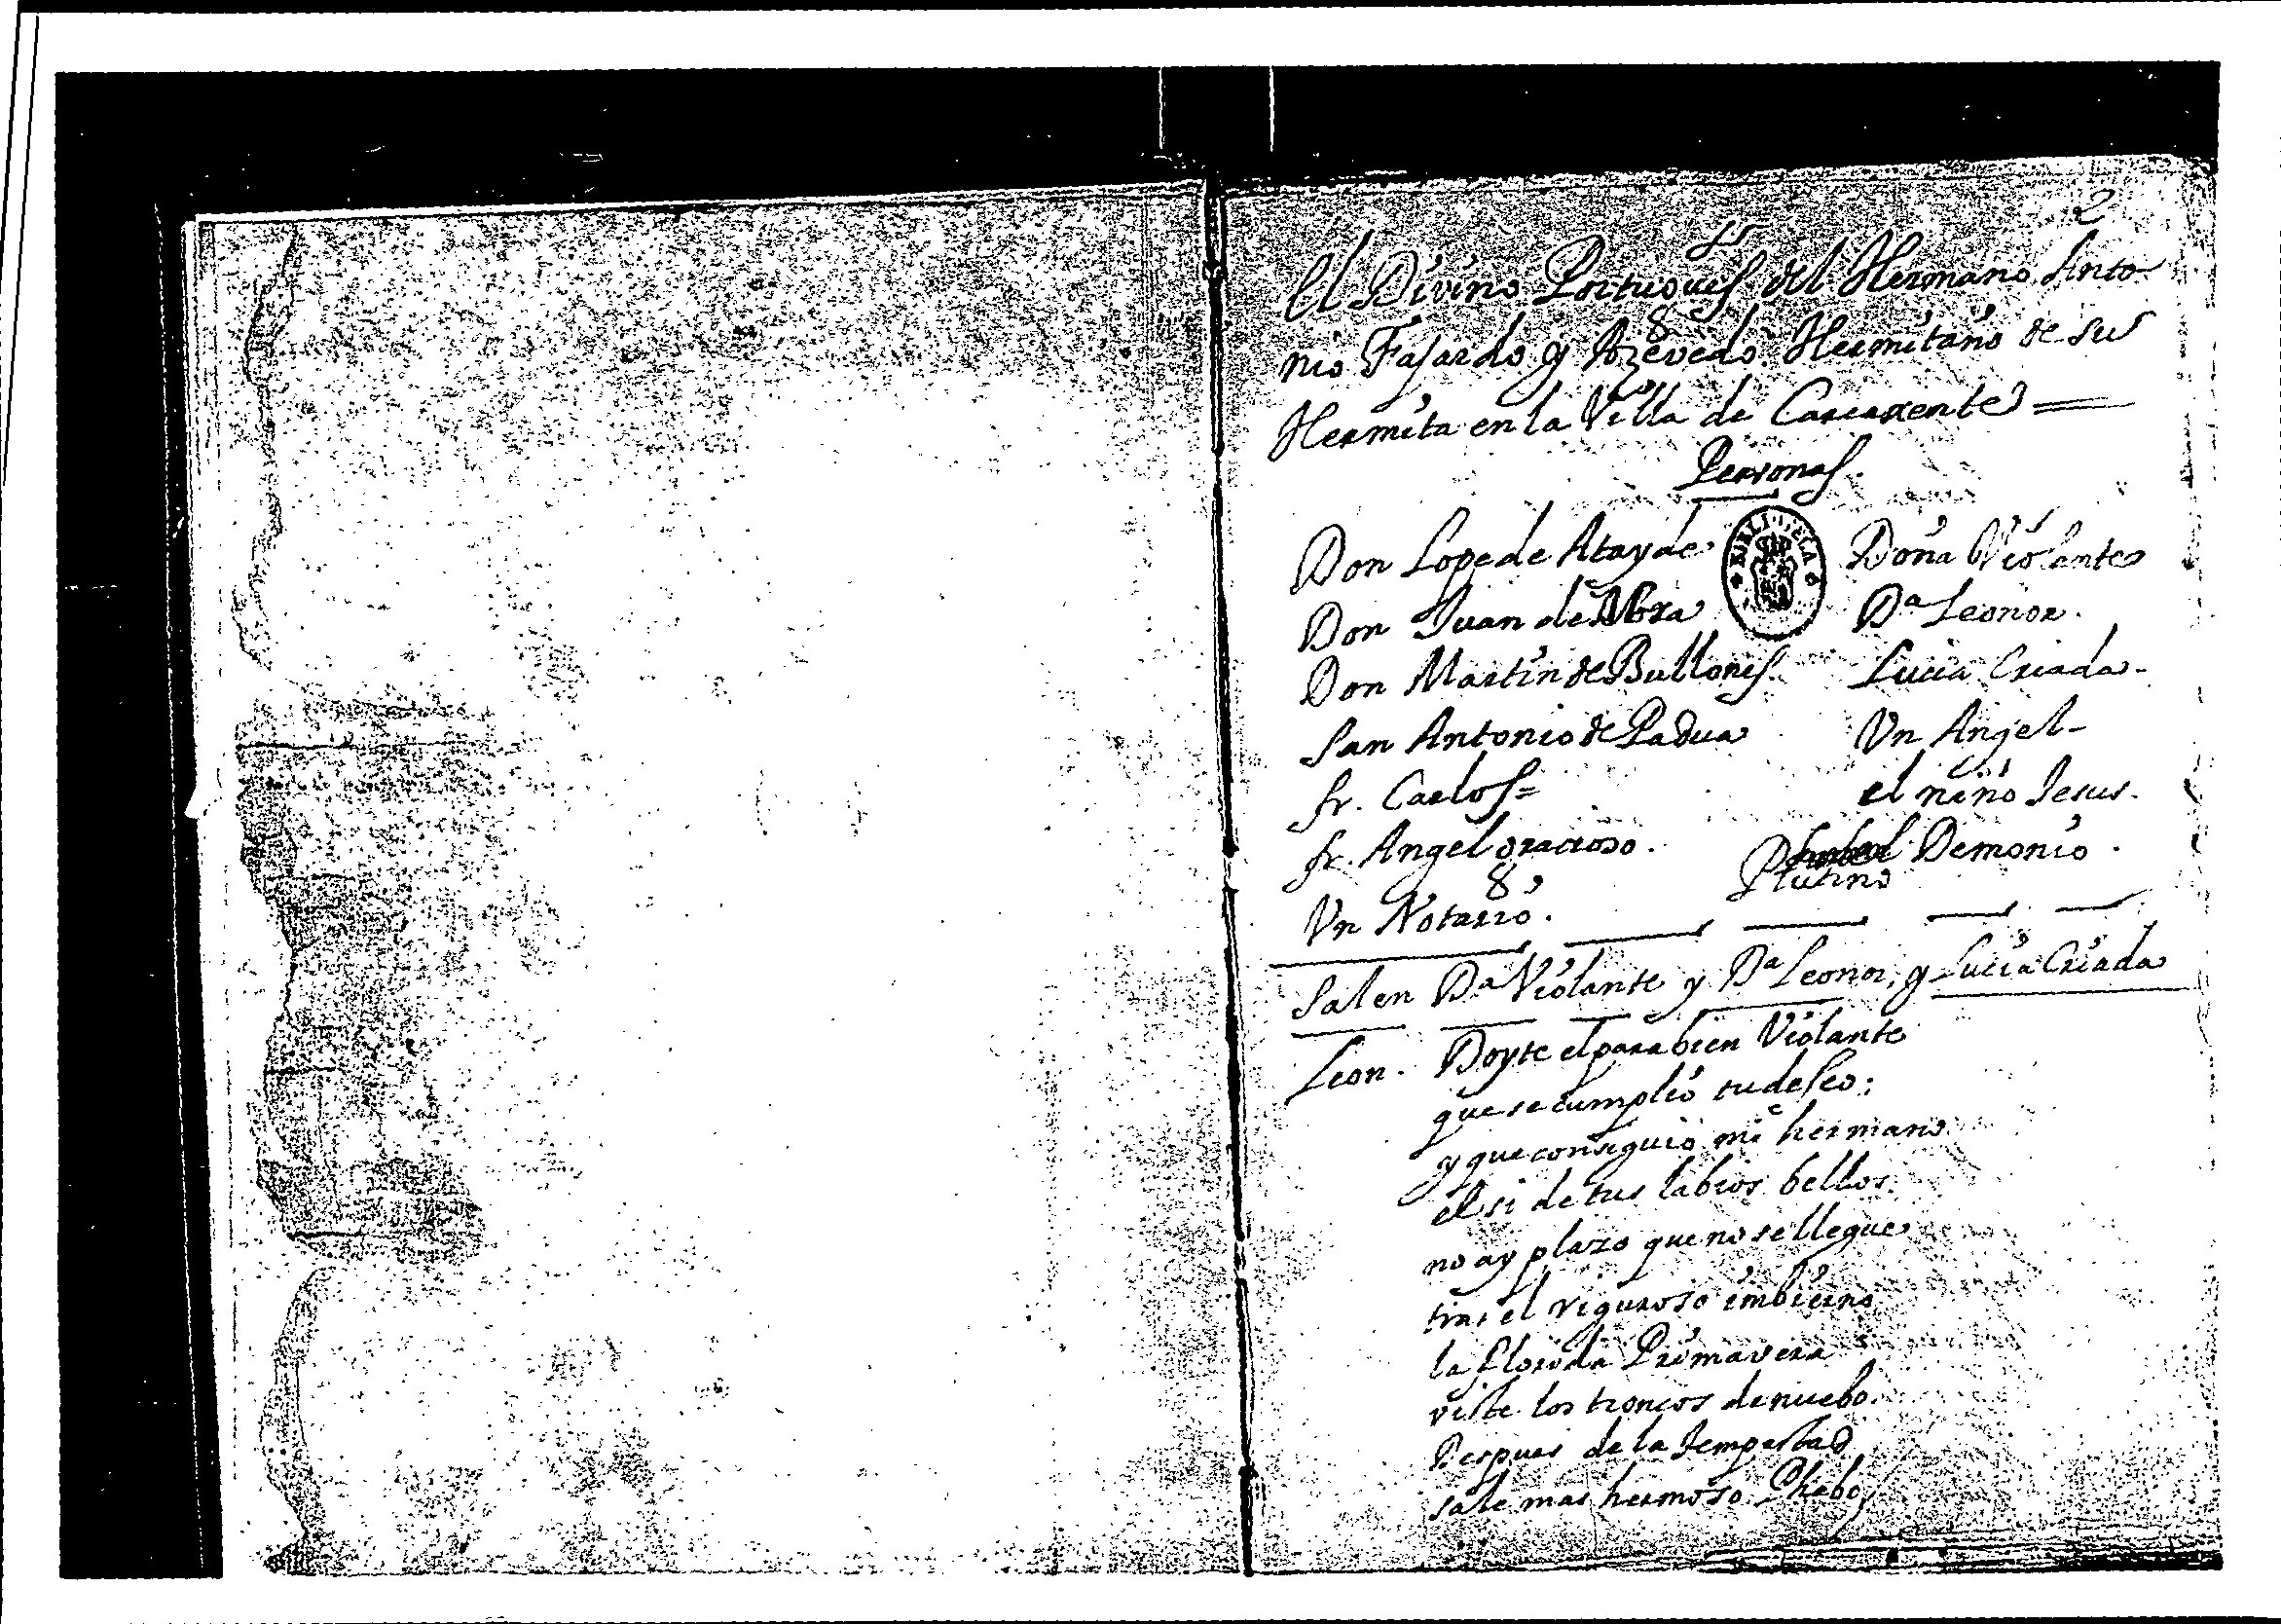 2
El Divino Portugues del Hermano Anto
nio Fajardo y Azevedo Hermitaño de su
Hermita en la Villa de Carcaxente
Personas
Don Lope de Atayde
Doña Violante
Don Juan de
Dª Leonor.
Don Martin de Bullones
Lucia Criada
San Antonio de Padua
Vn Angel
fr. Carlos
el niño Jesus.
fr. Angel gracioso.
Plutino Demonio.
Vn Notario.
BIBLIOTECA
Salen Dª Violante y Dª Leonor, y Lucia Criada
Leon. Doyte el parabien Violante
que se cumplio tu deseo:
y que consiguio mi hermano
el si de tus labios bellos.
no ay plazo que no se llegue
tras el riguroso imbierno
la florida Primavera
viste los troncos de nuebo.
Despues de la tempestad
sale mas hermoso Phebo,